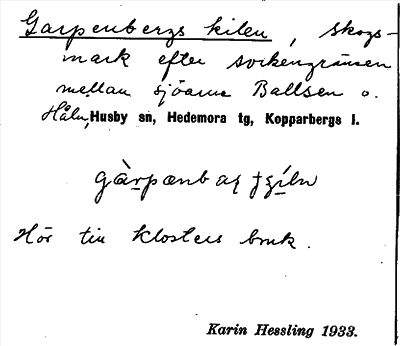 Garpenbergs kilen, skogs-
mark efter sockengränsen
mellan sjöarna Ballsen o.
Håln, Husby sn, Hedemora tg, Kopparbergs l.
Hör till Klosters bruk.
Karin Hessling 1933.